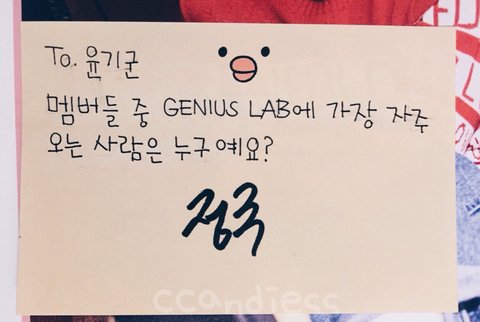 To. 윤기군
멤버들 중 GENIUS LAB에 가장 자주
오는 사람은 누구예요?
정국
ccandiess